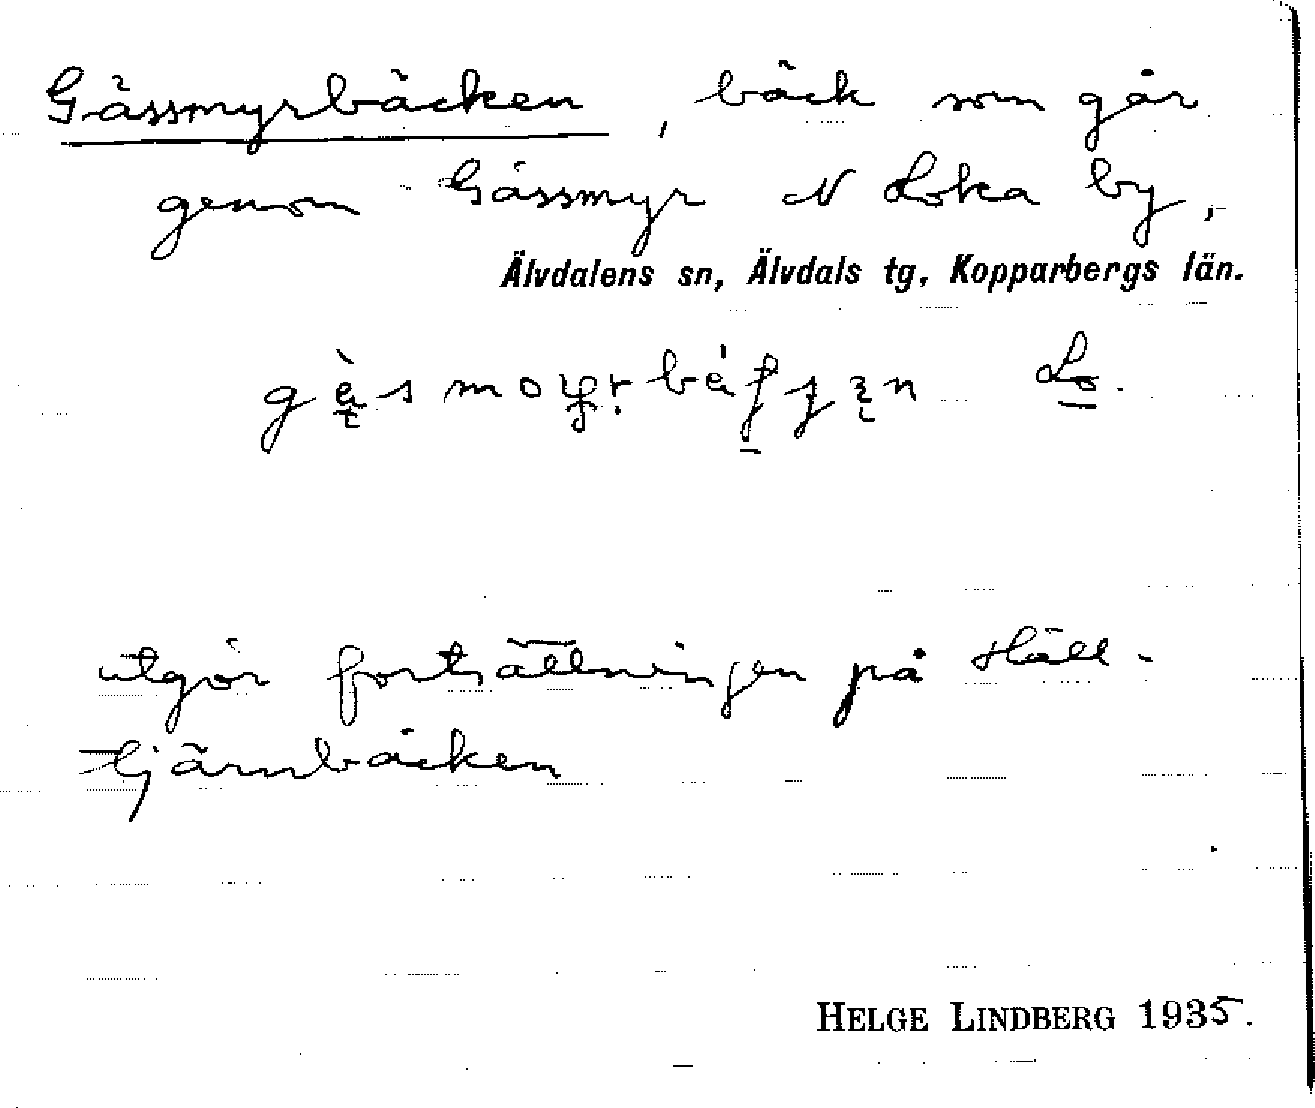 Gässmyrbäcken, bäck som går
genom Gässmyr N Loka by,
Älvdalens sn, Älvdals tg, Kopparbergs län.
Lo.
utgör fortsättningen på Häll-
tjärnbäcken
HELGE LINDBERG 1935.